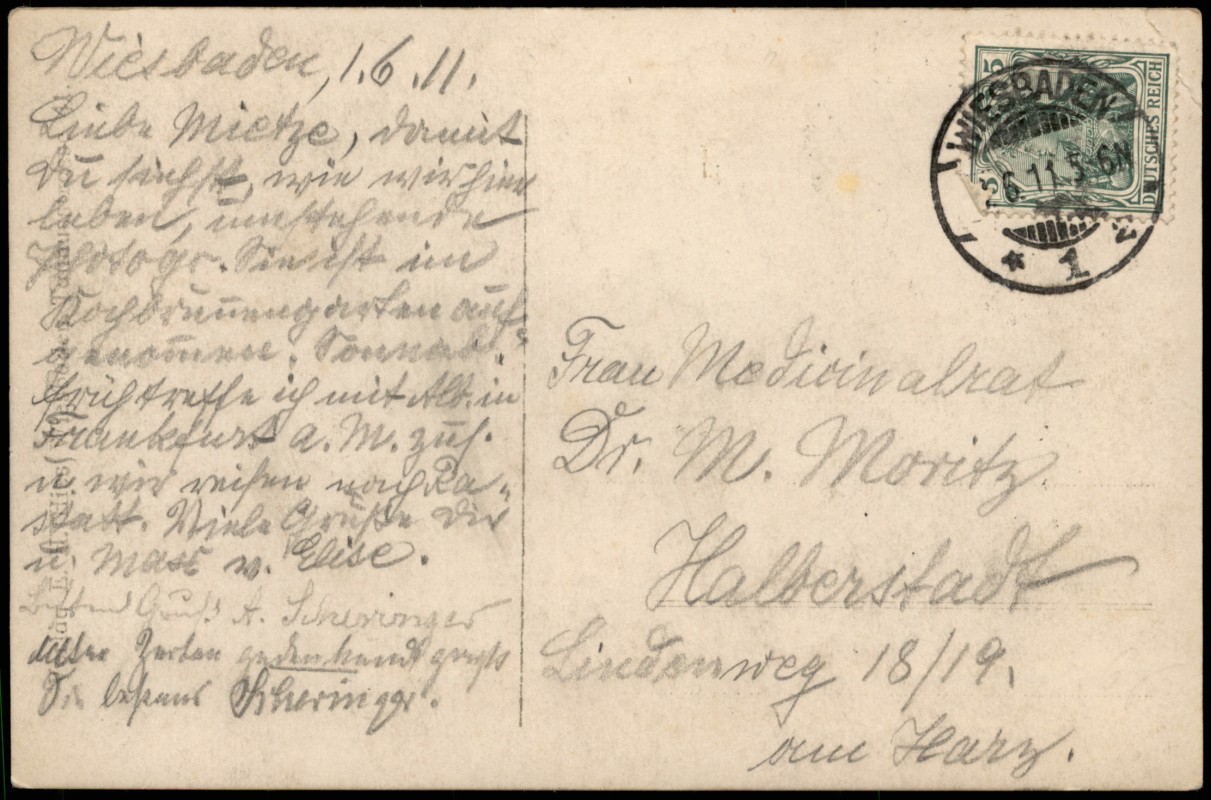 Wiesbaden, 1.6.11.
Liebe Mietze, damit
Du siehst, wie wir hier
leben, umstehende
Photogr. Sie ist im
Kochbrunnengarten auf-
genommen. Sonnab.
früh treffe ich mit Alb. in
Frankfurt a. M. zus.
u. wir reisen nach Ra-
statt. Viele Grüße Dir
u. Max v. Elise.
Besten Gruß A. Scheringer
Alter Zeiten gedenkend grüßt
Sie bestens Scheringer.
WIESBADEN
6.11.5-6N
* 1
5
5
DEUTSCHES REICH
Frau Medicinalrat
Dr. M. Moritz
Halberstadt
Lindenweg 18/19.
am Harz.